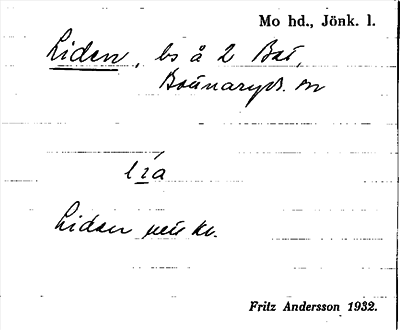 Mo hd., Jönk. l.
Liden, bs å 2 Bat,
Bounaryds sn
lia
Liden
Fritz Andersson 1932.